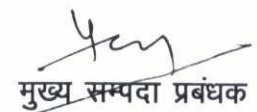 मुख्य सम्पदा प्रबंधक